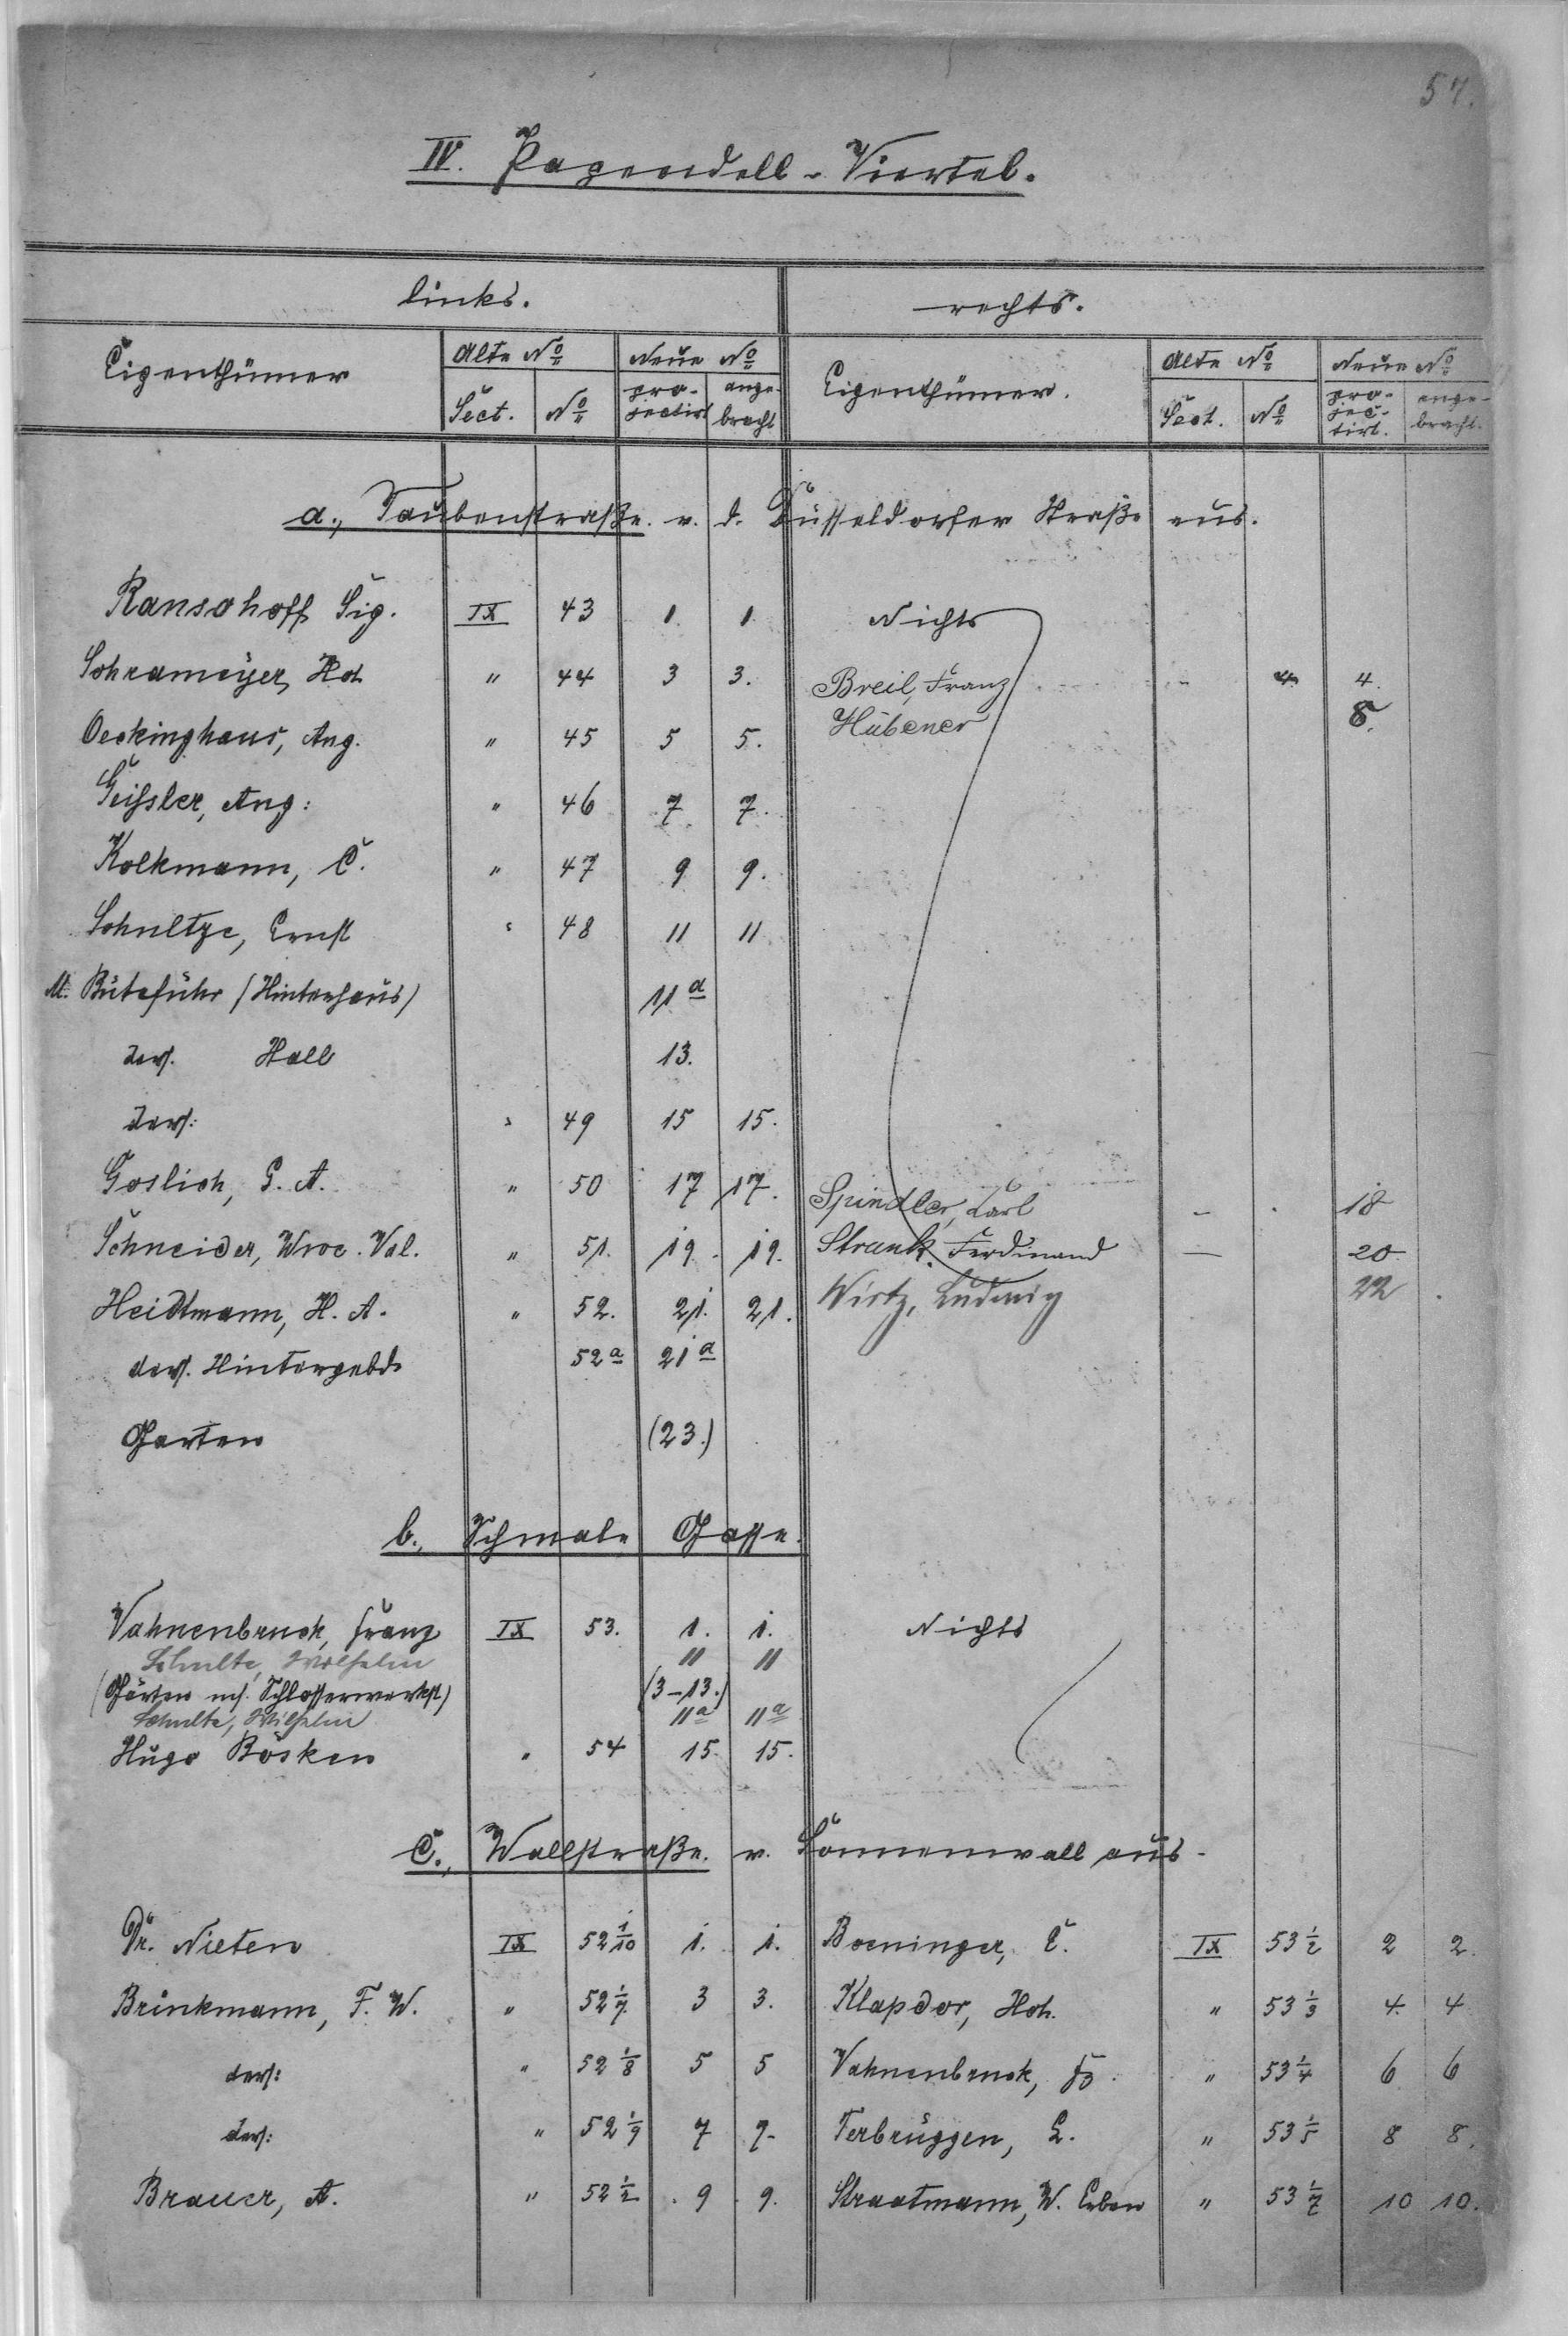 57.
IV. Papendell-Viertel.
links. rechts.
Eigenthümer Alte No Neue No Eigenthümer. Alte No Neue No
Sect. No projectirt angebracht Sect. No projectirt. angebracht.
a., Taubenstraße. v. d. Düsseldorfer Straße aus.
Ransohoff Sig. IX 43 1. 1. Nichts
Schrameyer, Hch " 44 3 3. Breil, Franz - 4 4.
Oeckinghaus, Aug. " 45 5 5. Hübener 8.
Geißler, Aug: " 46 7 7.
Kolkmann, C. " 47 9 9.
Schultze, Ernst " 48 11 11
M. Büteführ (Hinterhaus) 11a
ders. Stall 13.
ders: " 49 15 15.
Goslich, G. A. " 50 17 17. Spindler, Carl - 18
Schneider, Wwe. Val. " 51. 19. 19. Strunk, Ferdinand - 20
Heidtmann, H. A. " 52. 21. 21. Wirtz, Ludwig 22
ders. Hintergebd. 52a 21a
Garten (23.)
b., Schmale Gasse.
Vahnenbruck, Franz IX 53. 1. 1. Nichts
Schulte, Wilhelm 11 11
(Gärten u. Schlosserwerkst) (3-13.)
Schulte, Wilhelm 11a 11a
Hugo Bösken " 54 15. 15.
C., Wallstraße. v. Sonnenwall aus.
Dr. Nieten IX 52 1/10 1. 1. Boeninger, C. IX 53 1/2 2 2.
Brinkmann, F. W. " 52 1/7 3 3. Klapdor, Hch. " 53 1/3 4. 4
ders: " 52 1/8 5 5 Vahnenbruck, Fz. " 53 1/4 6 6
ders: " 52 1/9 7 7. Terbrüggen, L. " 53 1/5 8 8.
Brauer, A. " 52 1/2 9 9. Straatmann, W. Erben " 53 1/7 10 10.